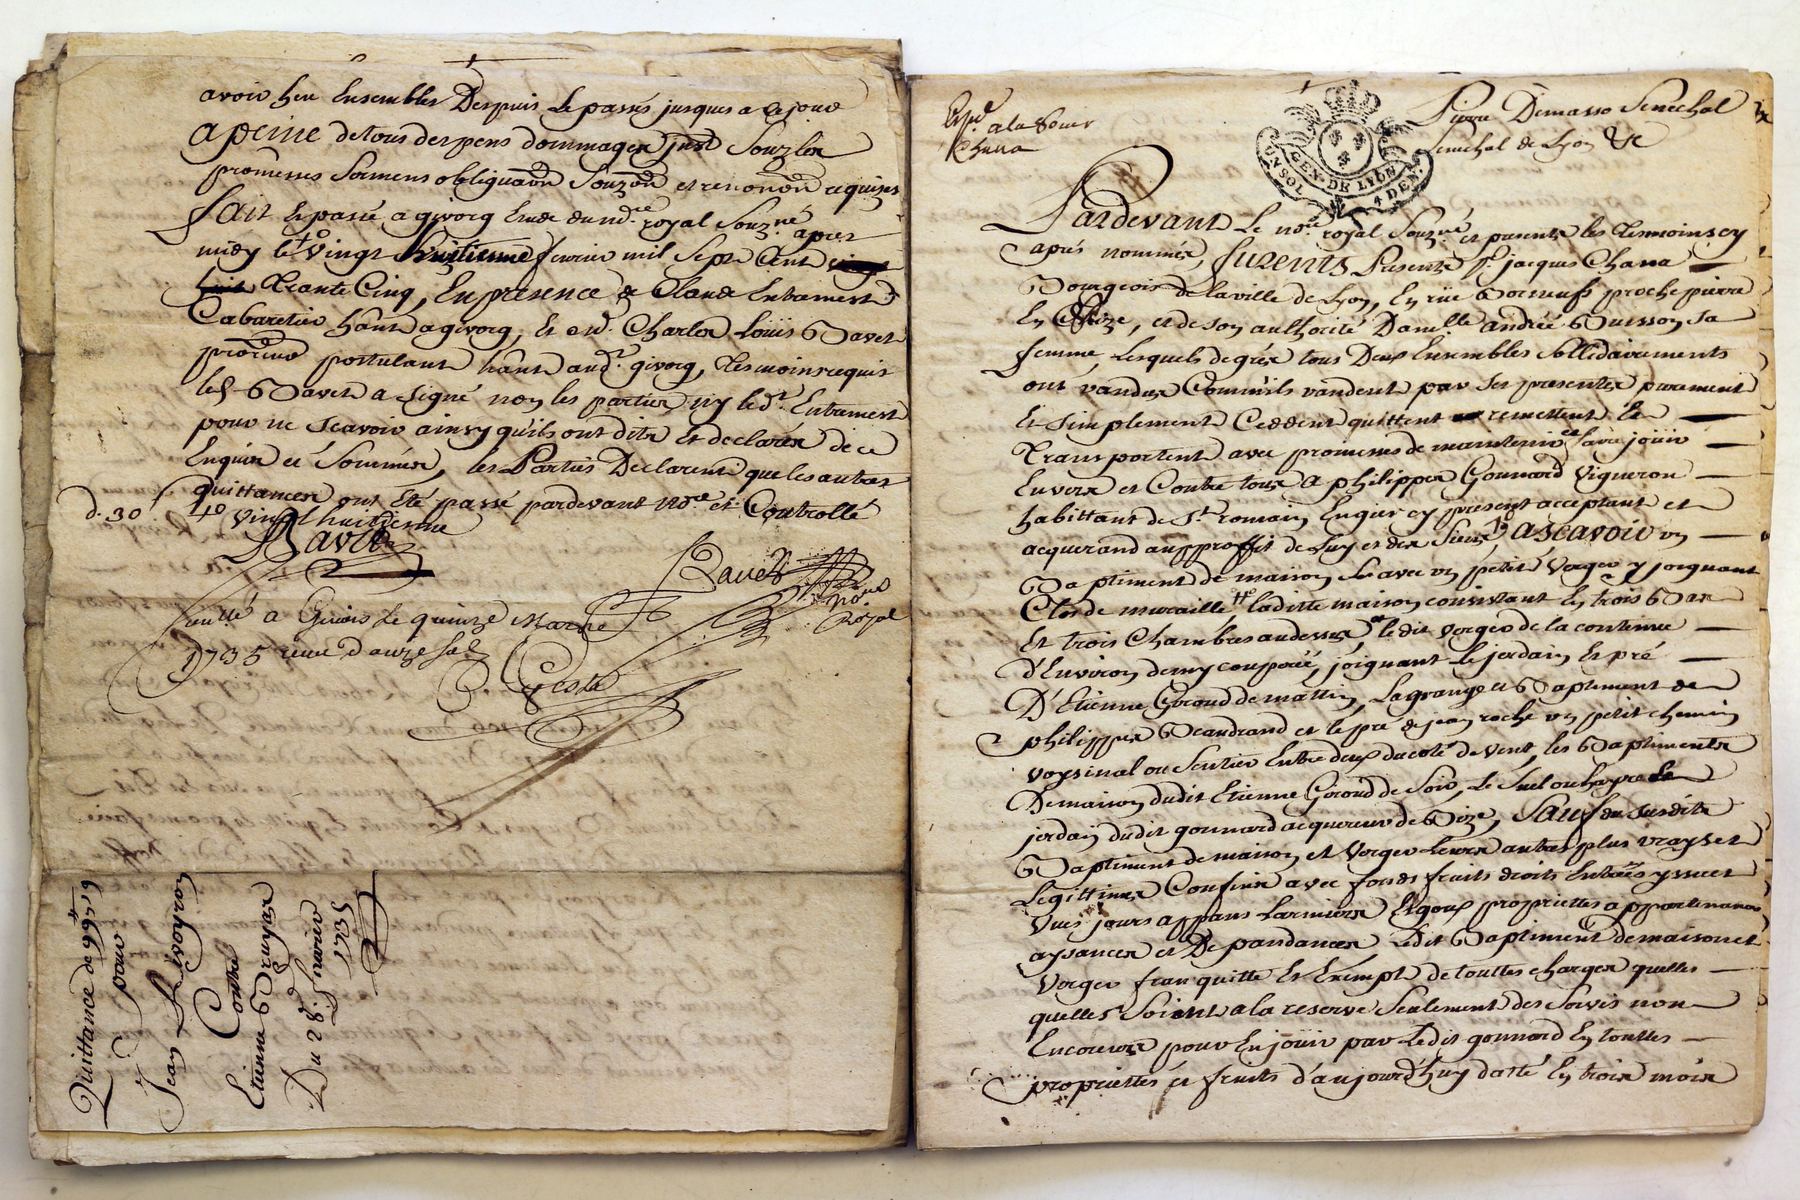 avoir heu Ensembles Despuis Le passés jusques a Ce jour
a peine de tous despens dommages jnst Souz les
promesses Sermens obligaõn Souzõn et renonõn requises
fait Et passé a givorg Etude du nore royal Souzné apres
midy le vingt huitienme fevrier mil Sept Cent
Trante Cinq, En presence de Claude Entrament
Cabaretier hãnt a givorg, Et Md. Charles Loüis Bavet
postulant hãnt aud. givorg, Tesmoins requis
led. Bavet a signé non les parties ny led. Entrament
pour ne scavoir ainsy qu'ils ont dits Et declarés de ce
Enquis et Sommés, les Parties Declarent que les autres
quittances ont Eté passé pardevant nore. et Controllé
d. 30 vingt huitienme
Bavet
Bavet
nore
Royal
a Givors Le quinze Mars
1735 receu douze sols
Quittance de 99# 19
pour
Jean Revoyron
Contre
Etienne Bruyas
Du 28e. fevrier
1735
Expé
a la Sieur
Chana
Pierre Dimasso Senechal
Senechal de Lyon &c
GEN. DE LYON
UN SOL 4 DEN.
Pardevant Le nore royal Souzné et presents les Tesmoins cy
aprés nommés, furents Presents Sr. jacques Chana
Bourgeois de la ville de Lyon, En rüe Bourneuf proche pierre
En Size, et de son authorité Damlle andrée Buisson sa
femme, Lesquels de grés tous Deux Ensembles Sollidairements
ont vandus Comm'ils vandent par Ses presentes purement
Et simplement Ceddent quittent remettent Et
Transportent avec promesses de maintenir et faire joüir
Envers et Contre tous a philippes Gonnard Vigneron
habittant de St. romain En gier cy present acceptant et
acquerand au proffit de Luy et des Siens, ascavoir un
Baptiment de maison Et avec un pétit Verger y joignant
Clos de muraille laditte maison consistant En trois Bas
Et trois Chambres au dessus, et le dit verger de la contenue
D'Environ demy couponée, joignant Le jerdain Et pré
D'Etienne Giroud de mattin, La grange et Baptiment de
philippes Beaudrand et le pré de jean roche un petit chemin
voysinal ou Sentier Entre deux du coté de vent, les Baptiments
De maison dudit Etienne Giroud de Soir, Le Suel ou hayre Et
jerdain dudit gonnard acquereur de Bize, Sauf du Susdits
Baptiment de maison et Verger Leurs autres plus vrays et
Legittimes Confins avec fonds fruits droits Entrées yssues
Vues jours appans Larmiers Egoux propriettes appartenances
aysances et Depandances Ledit Baptiment de maison et
Verger franquitte Et Exempt de touttes charges quelles
quelles Soient a la reserve Seulement des Servis non
Encourus pour En joüir par Ledit gonnard En touttes
propriettés et fruits d'aujourd'huy datté En trois mois